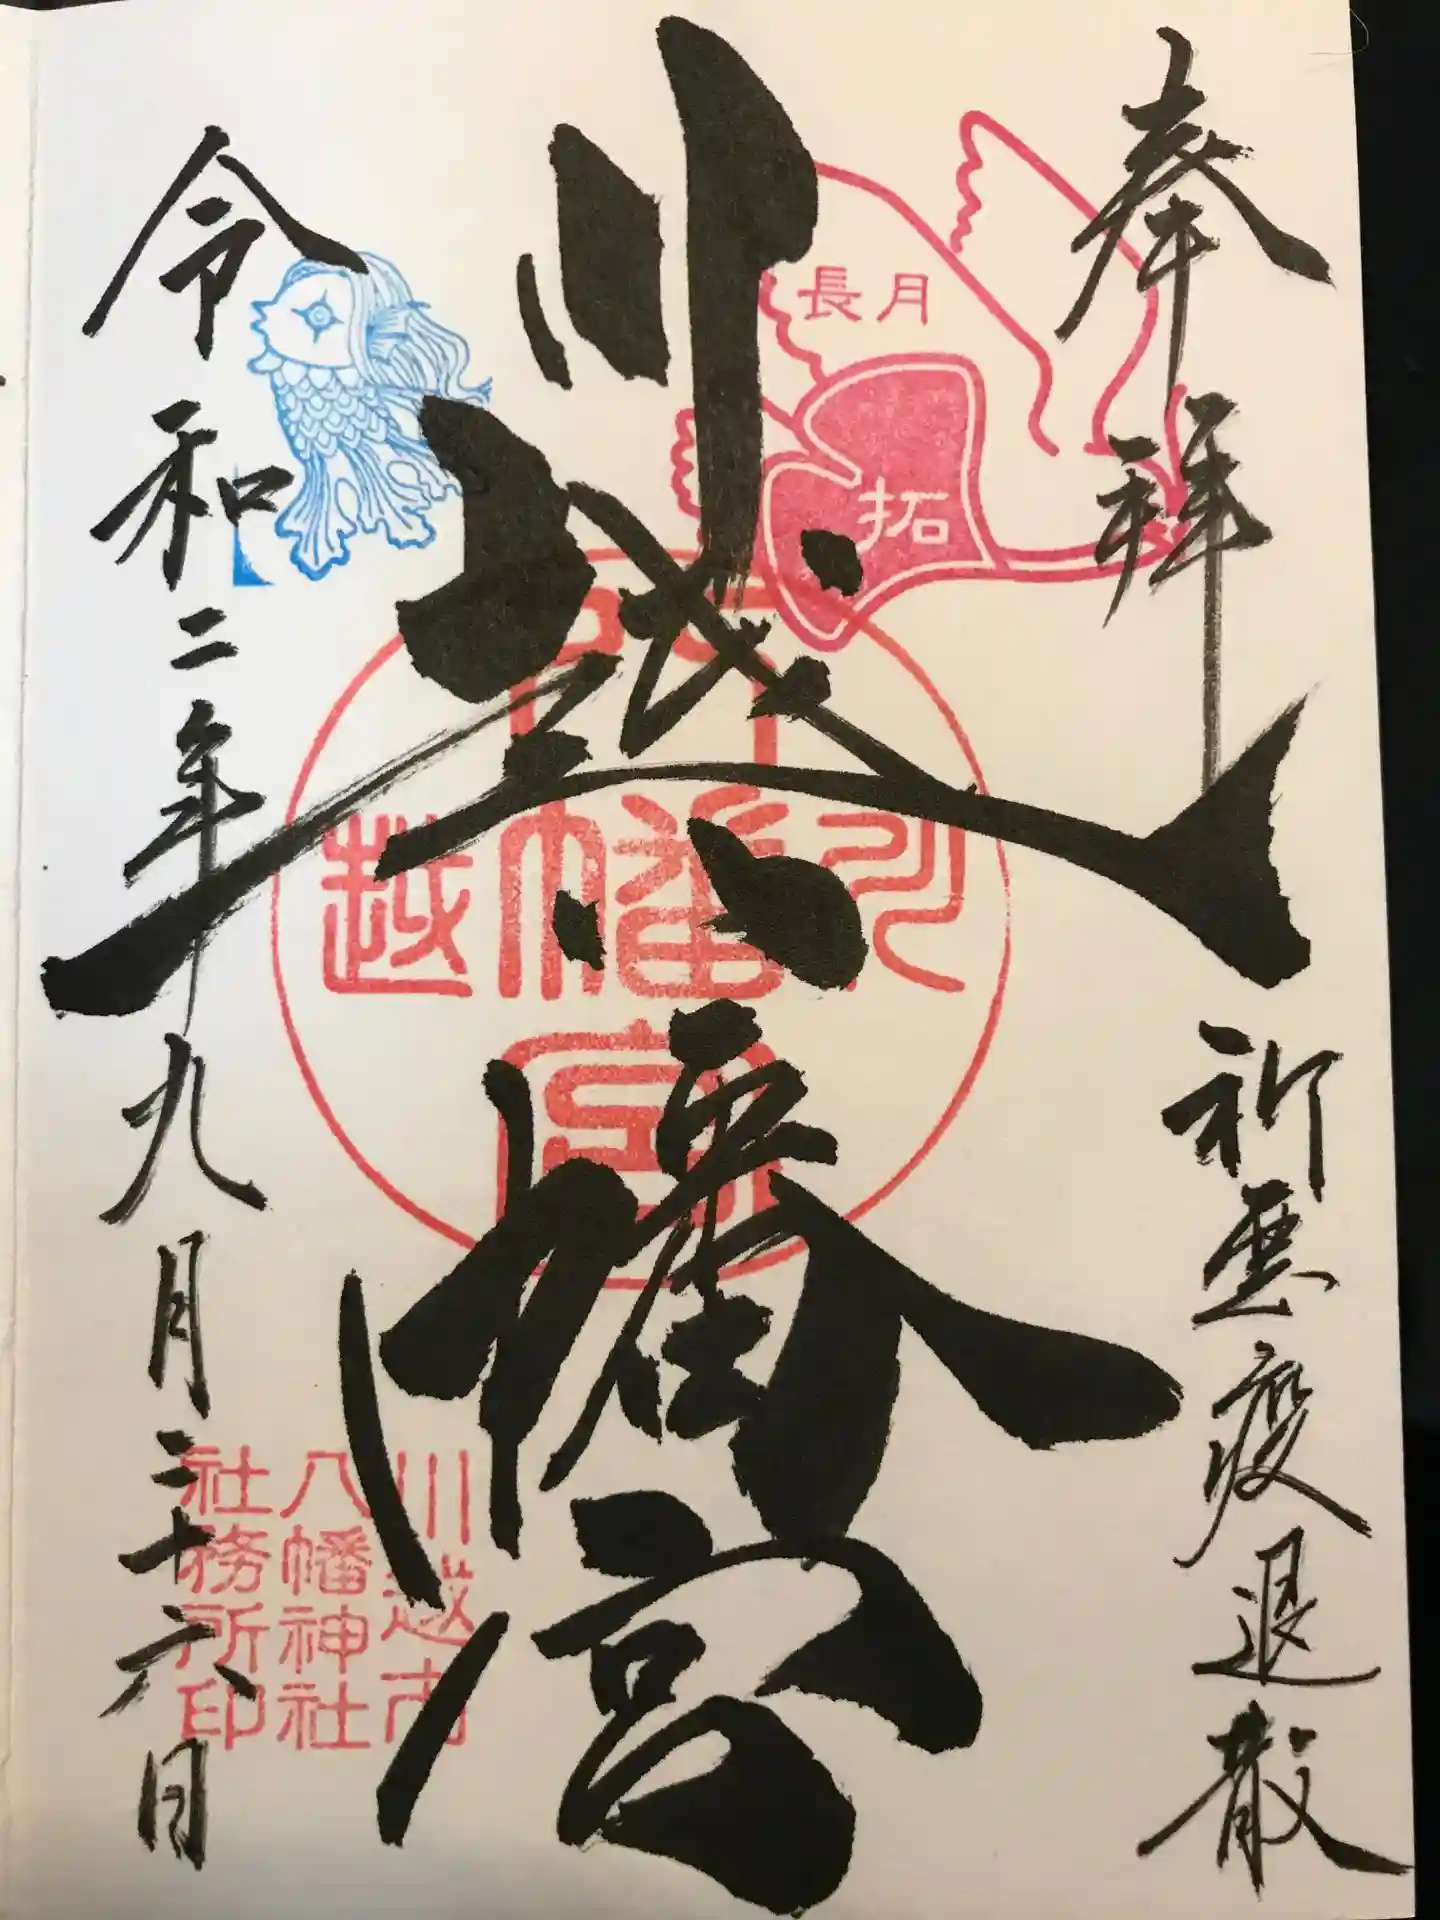 奉拝
祈悪疫退散
川越八幡宮
令和二年九月二十六日
長月
拓
川越
八幡宮
川越市
八幡神社
社務所印